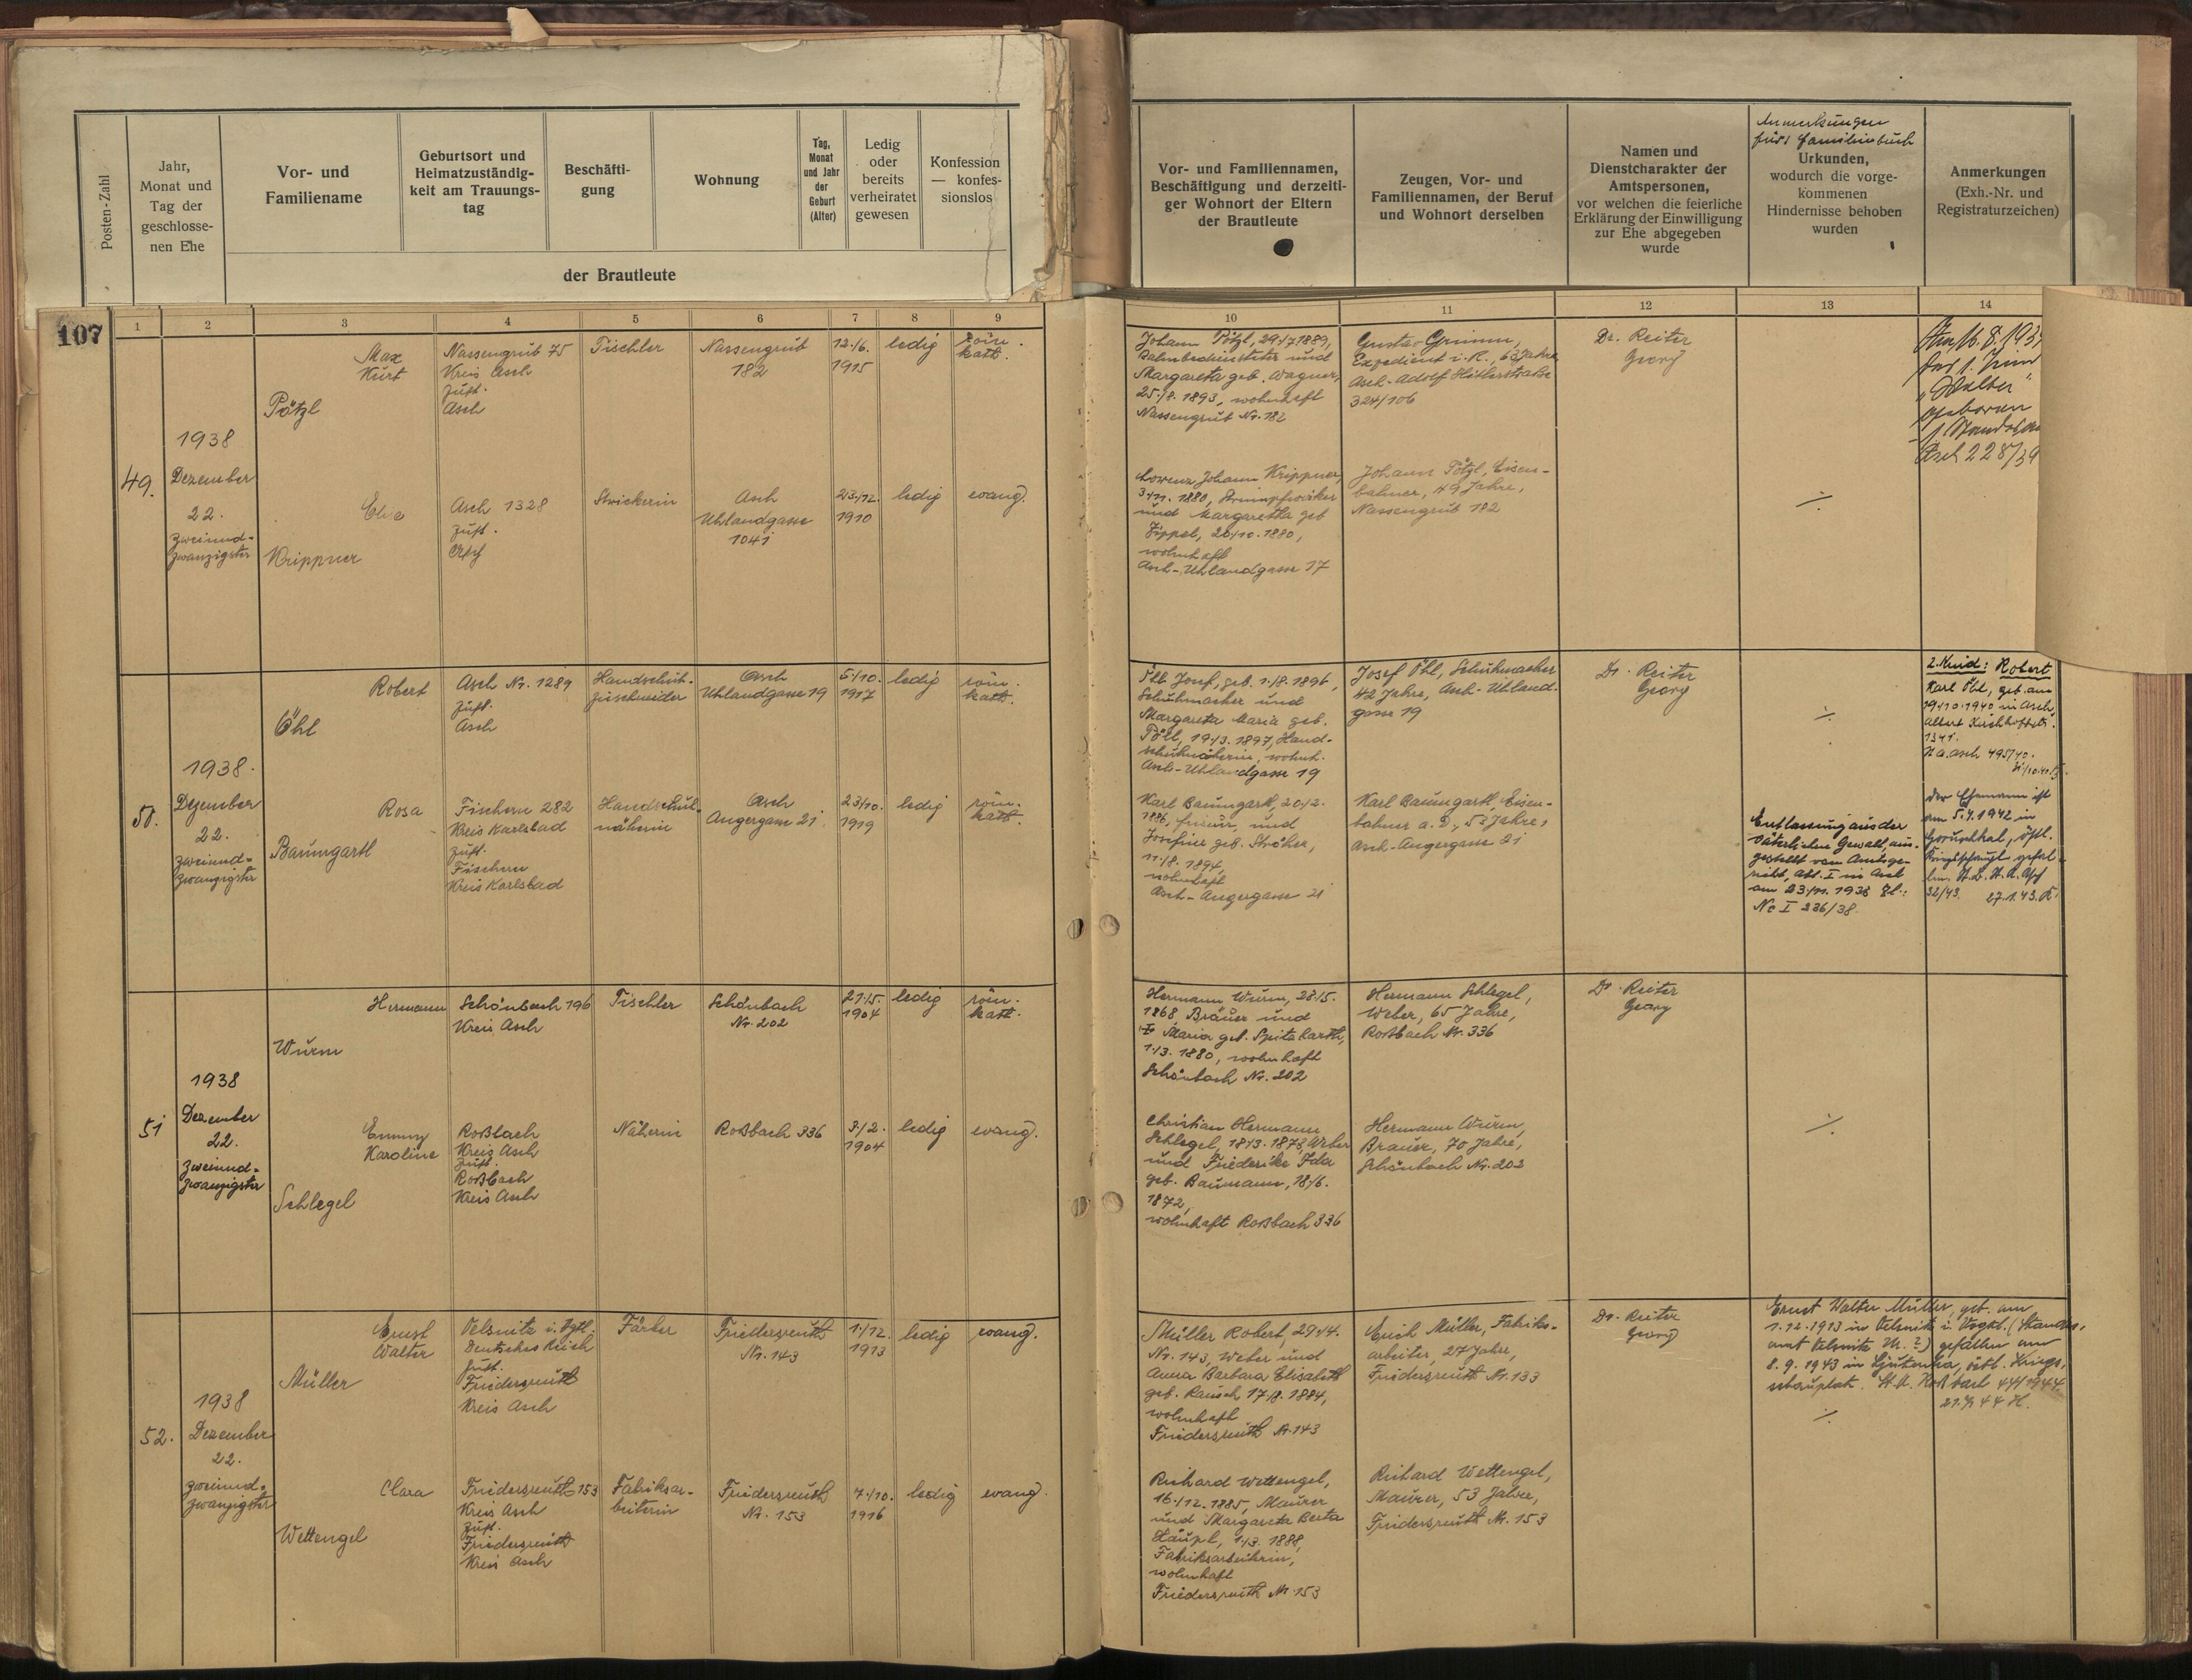 Posten-Zahl
Jahr,
Monat und
Tag der
geschlosse-
nen Ehe
Vor- und
Familienname
Geburtsort und
Heimatzuständig-
keit am Trauungs-
tag
Beschäfti-
gung
Wohnung
Tag,
Monat
und Jahr
der
Geburt
(Alter)
Ledig
oder
bereits
verheiratet
gewesen
Konfession
— konfes-
sionslos
der Brautleute
Vor- und Familiennamen,
Beschäftigung und derzeiti-
ger Wohnort der Eltern
der Brautleute
Zeugen, Vor- und
Familiennamen, der Beruf
und Wohnort derselben
Namen und
Dienstcharakter der
Amtspersonen,
vor welchen die feierliche
Erklärung der Einwilligung
zur Ehe abgegeben
wurde
Anmerkungen
fürs Familienbuch
Urkunden,
wodurch die vorge-
kommenen
Hindernisse behoben
wurden
Anmerkungen
(Exh.-Nr. und
Registraturzeichen)
107
1 2 3 4 5 6 7 8 9 10 11 12 13 14
49.
1938
Dezember
22.
zweiund-
zwanzigster
Max
Kurt
Pötzl
Nassengrub 75
Kreis Asch
Zust.
Asch
Tischler
Nassengrub
182
12./6.
1915
ledig
röm.
kath.
Johann Pötzl, 29./7.1889,
Bahnbediensteter und
Margareta geb. Wagner,
25./8. 1893, wohnhaft
Nassengrub Nr. 182
Gustav Grimm,
Expedient i. R., 63 Jahre
Asch-Adolf Hitlerstraße
324/106
Dr. Reiter
Georg
"Walter"
geboren
Asch 228/39
Krippner
Asch 1328
Zust.
Asch
Strickerin
Asch
Uhlandgasse
1041
23./12.
1910
ledig
evang.
Lorenz Johann Krippner,
3./11. 1880, Strumpfwirker
und Margaretha geb
Zippel, 20./10. 1880,
wohnhaft
Asch-Uhlandgasse 17
Johann Pötzl, Eisen-
bahner, 49 Jahre,
Nassengrub 182
50.
1938.
Dezember
22.
zweiund-
zwanzigster
Robert
Öhl
Asch Nr. 1289
Zust.
Asch
Handschuh-
zuschneider
Asch
Uhlandgasse 19
5./10.
1917
ledig
röm.
kath.
Öhl Josef, geb. 1./8. 1896,
Schuhmacher und
Margareta Maria geb.
19./3. 1897, Hand-
schuhnäherin, wohnh.
Asch-Uhlandgasse 19
Josef Öhl, Schuhmacher
42 Jahre, Asch-Uhland-
gasse 19
Dr. Reiter
Georg
2. Kind: Robert
Karl Öhl, geb. am
19./10. 1940 in Asch,
1341.
Asch 495/40.
Rosa
Baumgartl
Fischern 282
Kreis Karlsbad
Zust.
Fischern
Kreis Karlsbad
Handschuh-
näherin
Asch
Angergasse 21
23./10.
1919
ledig
röm.
kath.
Karl Baumgartl, 20./2.
1886, Friseur, und
Josefine geb. Ströher,
11./8. 1894,
wohnhaft
Asch-Angergasse 21
Karl Baumgartl, Eisen-
bahner a. D., 53 Jahre,
Asch-Angergasse 21
Entlassung aus der
väterlichen Gewalt, aus-
gestellt vom Amtsge-
richt, Abt. I in Asch
am 23./11. 1938 Zl.:
Nc I 236/38.
Der Ehemann ist
am 5.4.1942 in
östl.
Kriegsschaupl. gefal-
len. St. A. Asch
32/43. 27.1.43. K.
51
1938
Dezember
22.
zweiund-
zwanzigster
Hermann
Wurm
Schönbach 196
Kreis Asch
Tischler
Schönbach
Nr. 202
27./5.
1904
ledig
röm.
kath.
Hermann Wurm, 28./5.
1868 Brauer und
Maria geb. Spitzbarth,
1./3. 1880, wohnhaft
Schönbach Nr. 202
Hermann Schlegel,
Weber, 65 Jahre,
Roßbach Nr. 336
Dr. Reiter
Georg
Emmy
Karoline
Schlegel
Roßbach
Kreis Asch
Zust.
Roßbach
Kreis Asch
Näherin
Roßbach 336
3./2.
1904
ledig
evang.
Christian Hermann
Schlegel, 18./3. 1873, Weber
und Friederike Ida
geb. Baumann, 18./6.
1872,
wohnhaft Roßbach 336
Hermann Wurm,
Brauer, 70 Jahre,
Schönbach Nr. 202
52.
1938
Dezember
22.
zweiund-
zwanzigster
Ernst
Walter
Müller
Oelsnitz i. Vgtl.
Deutsches Reich
Zust.
Friedersreuth
Kreis Asch
Färber
Friedersreuth
Nr. 143
1./12.
1913
ledig
evang.
Müller Robert, 29./4.
Nr. 143, Weber und
Anna Barbara Elisabeth
geb. Rausch 17./8. 1884,
wohnhaft
Friedersreuth Nr. 143
Erich Müller, Fabriks-
arbeiter, 27 Jahre,
Friedersreuth Nr. 133
Dr. Reiter
Georg
Ernst Walter Müller, geb. am
1. 12. 1913 in Oelsnitz i. Vogtl. (Standes-
amt Oelsnitz Nr. ?) gefallen am
8. 9. 1943 in Ljutenka, östl. Kriegs-
schauplatz. St. A. Roßbach 44/1944.
Clara
Wettengel
Friedersreuth 153
Kreis Asch
Zust.
Friedersreuth
Kreis Asch
Fabriksar-
beiterin
Friedersreuth
Nr. 153
7./10.
1916
ledig
evang.
Richard Wettengel,
16./12. 1885, Maurer
und Margareta Berta
Käupl, 1./3. 1888,
Fabriksarbeiterin,
wohnhaft
Friedersreuth Nr. 153
Richard Wettengel,
Maurer, 53 Jahre,
Friedersreuth Nr. 153